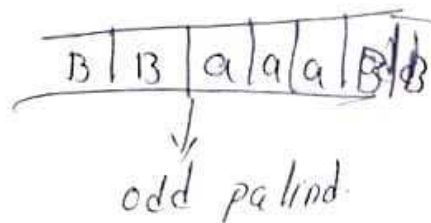 B | B | a | a | a | B | B
odd palind.